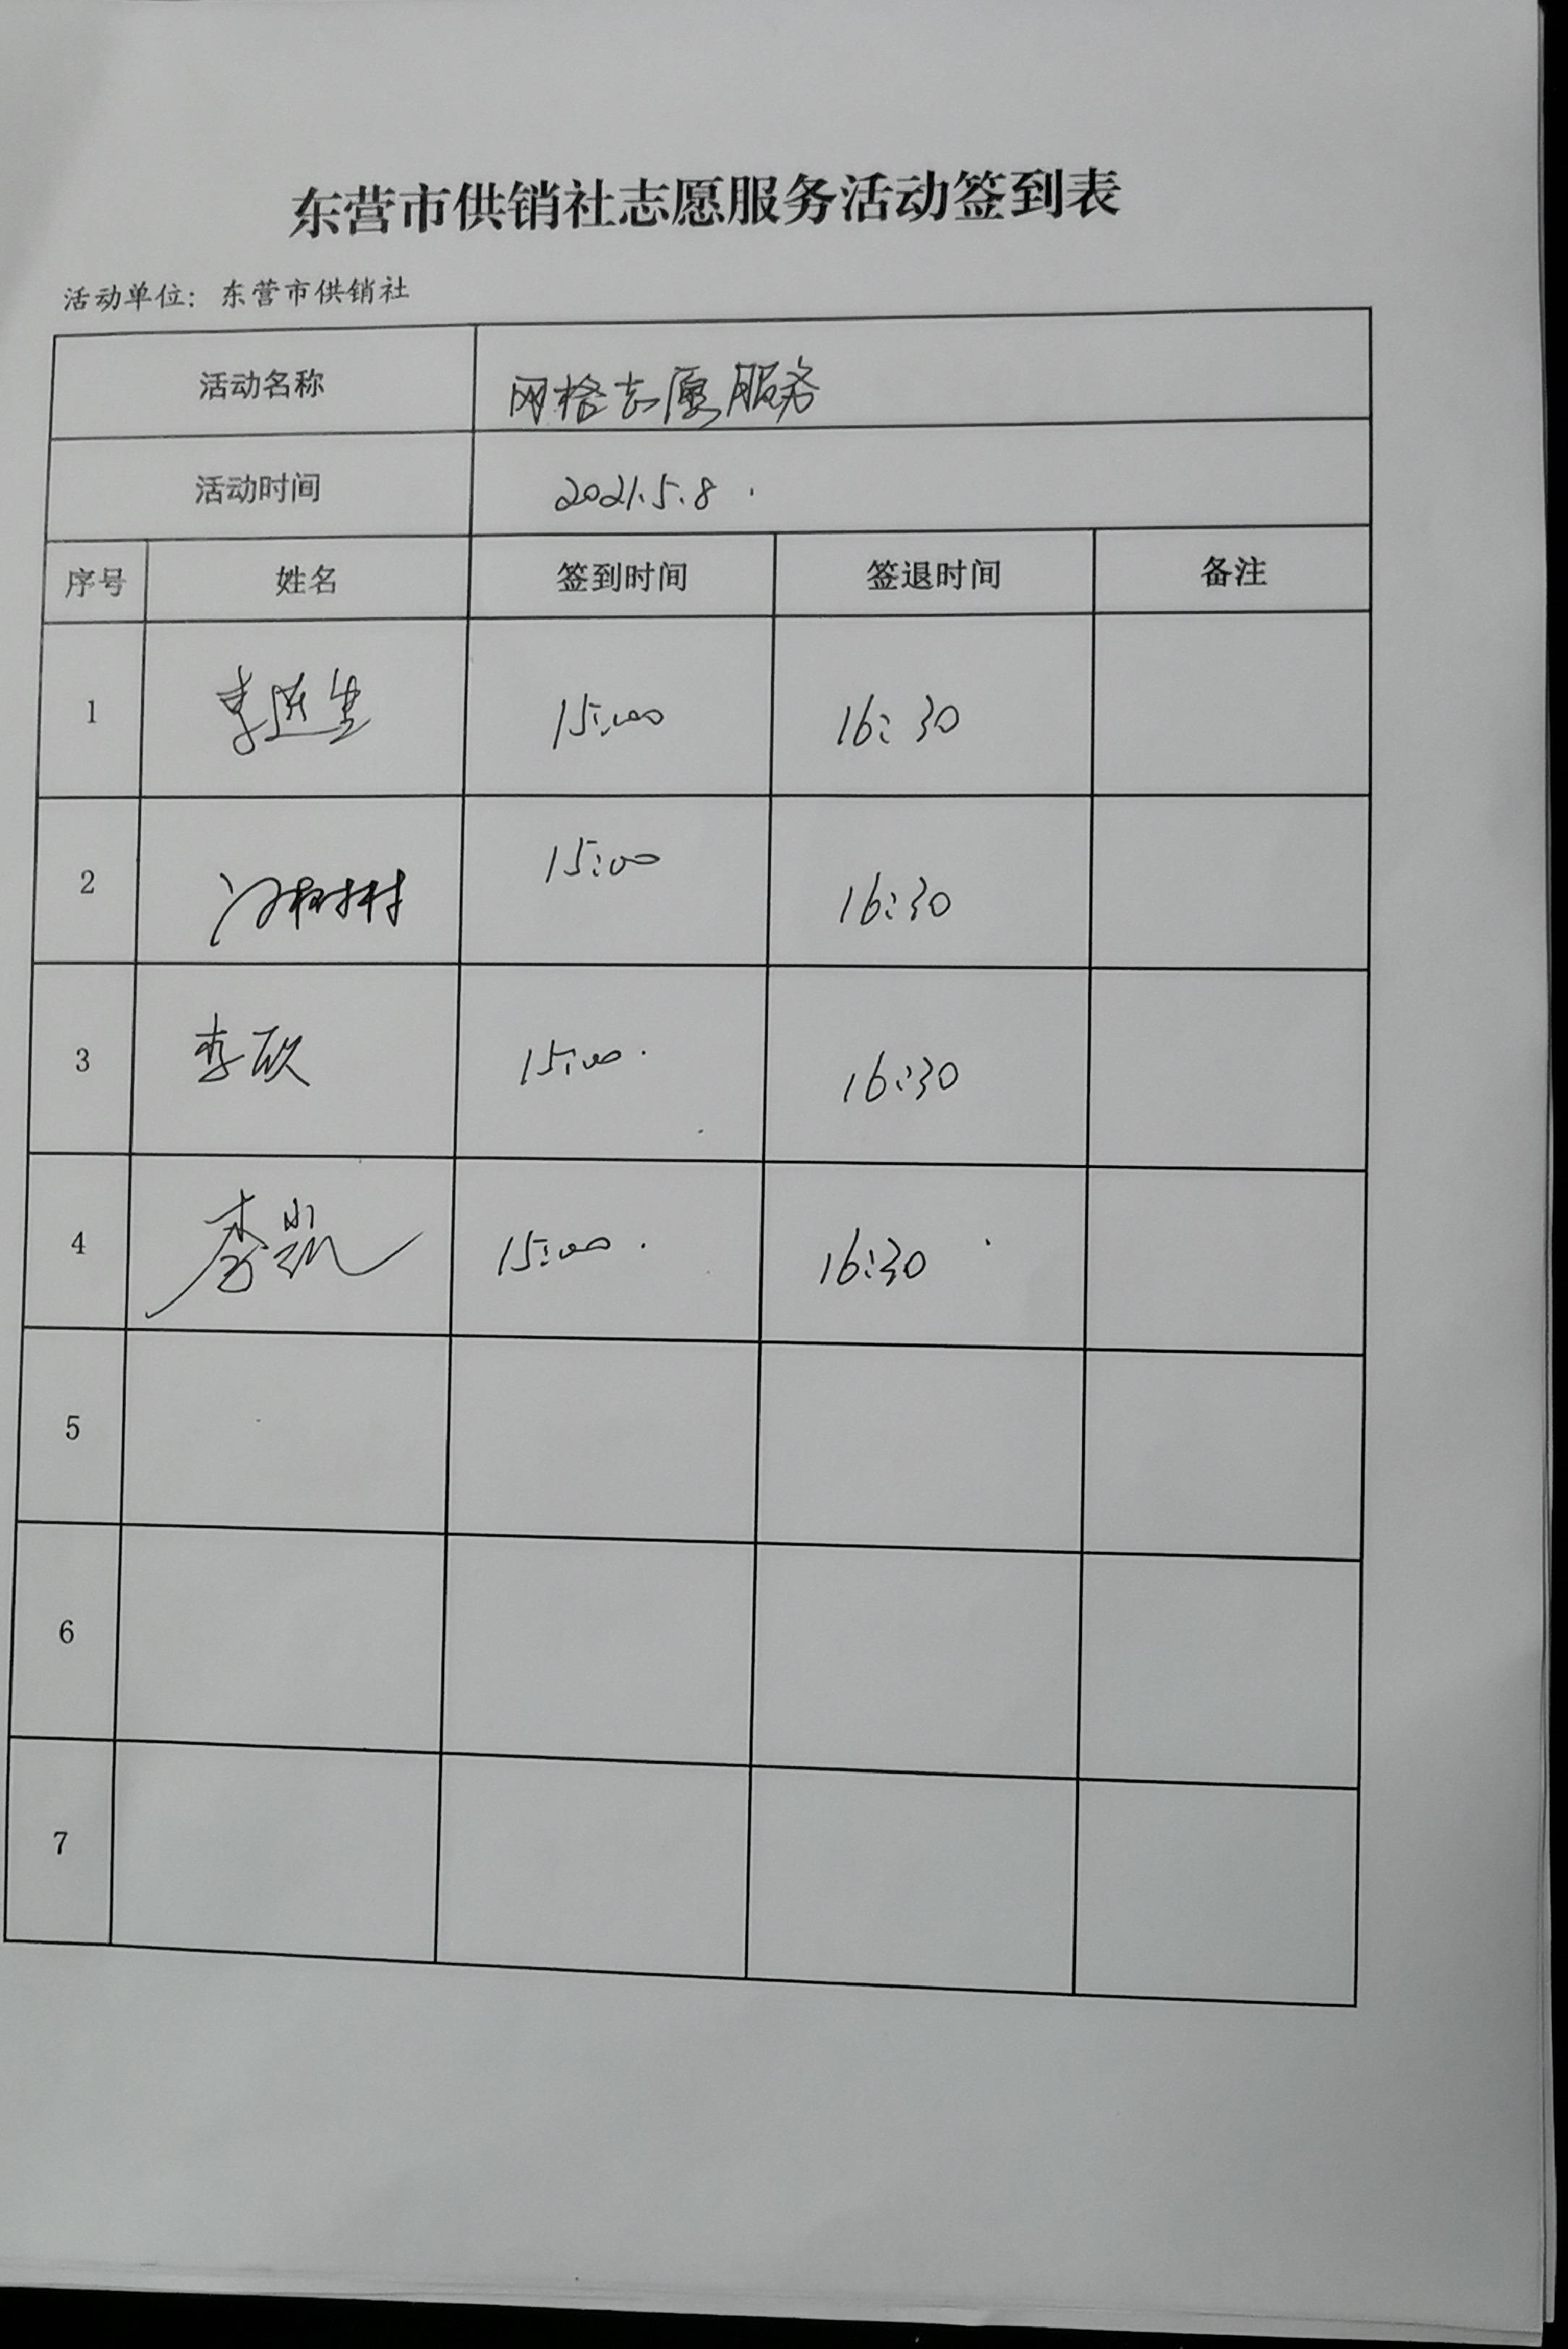 东营市供销社志愿服务活动签到表
活动单位：东营市供销社
活动名称 网格志愿服务
活动时间 2021.5.8.
序号 姓名 签到时间 签退时间 备注
1 15:00 16:30
2 15:00 16:30
3 李欣 15:00. 16:30
4 李凯 15:00. 16:30
5
6
7